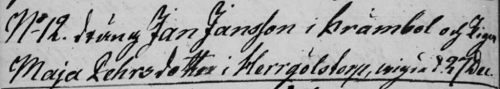 No 12. dräng Jan Jansson i Krämbol och Pigan
Maja Pehrsdotter i Herrgölstorp, vigde d 27 Dec.